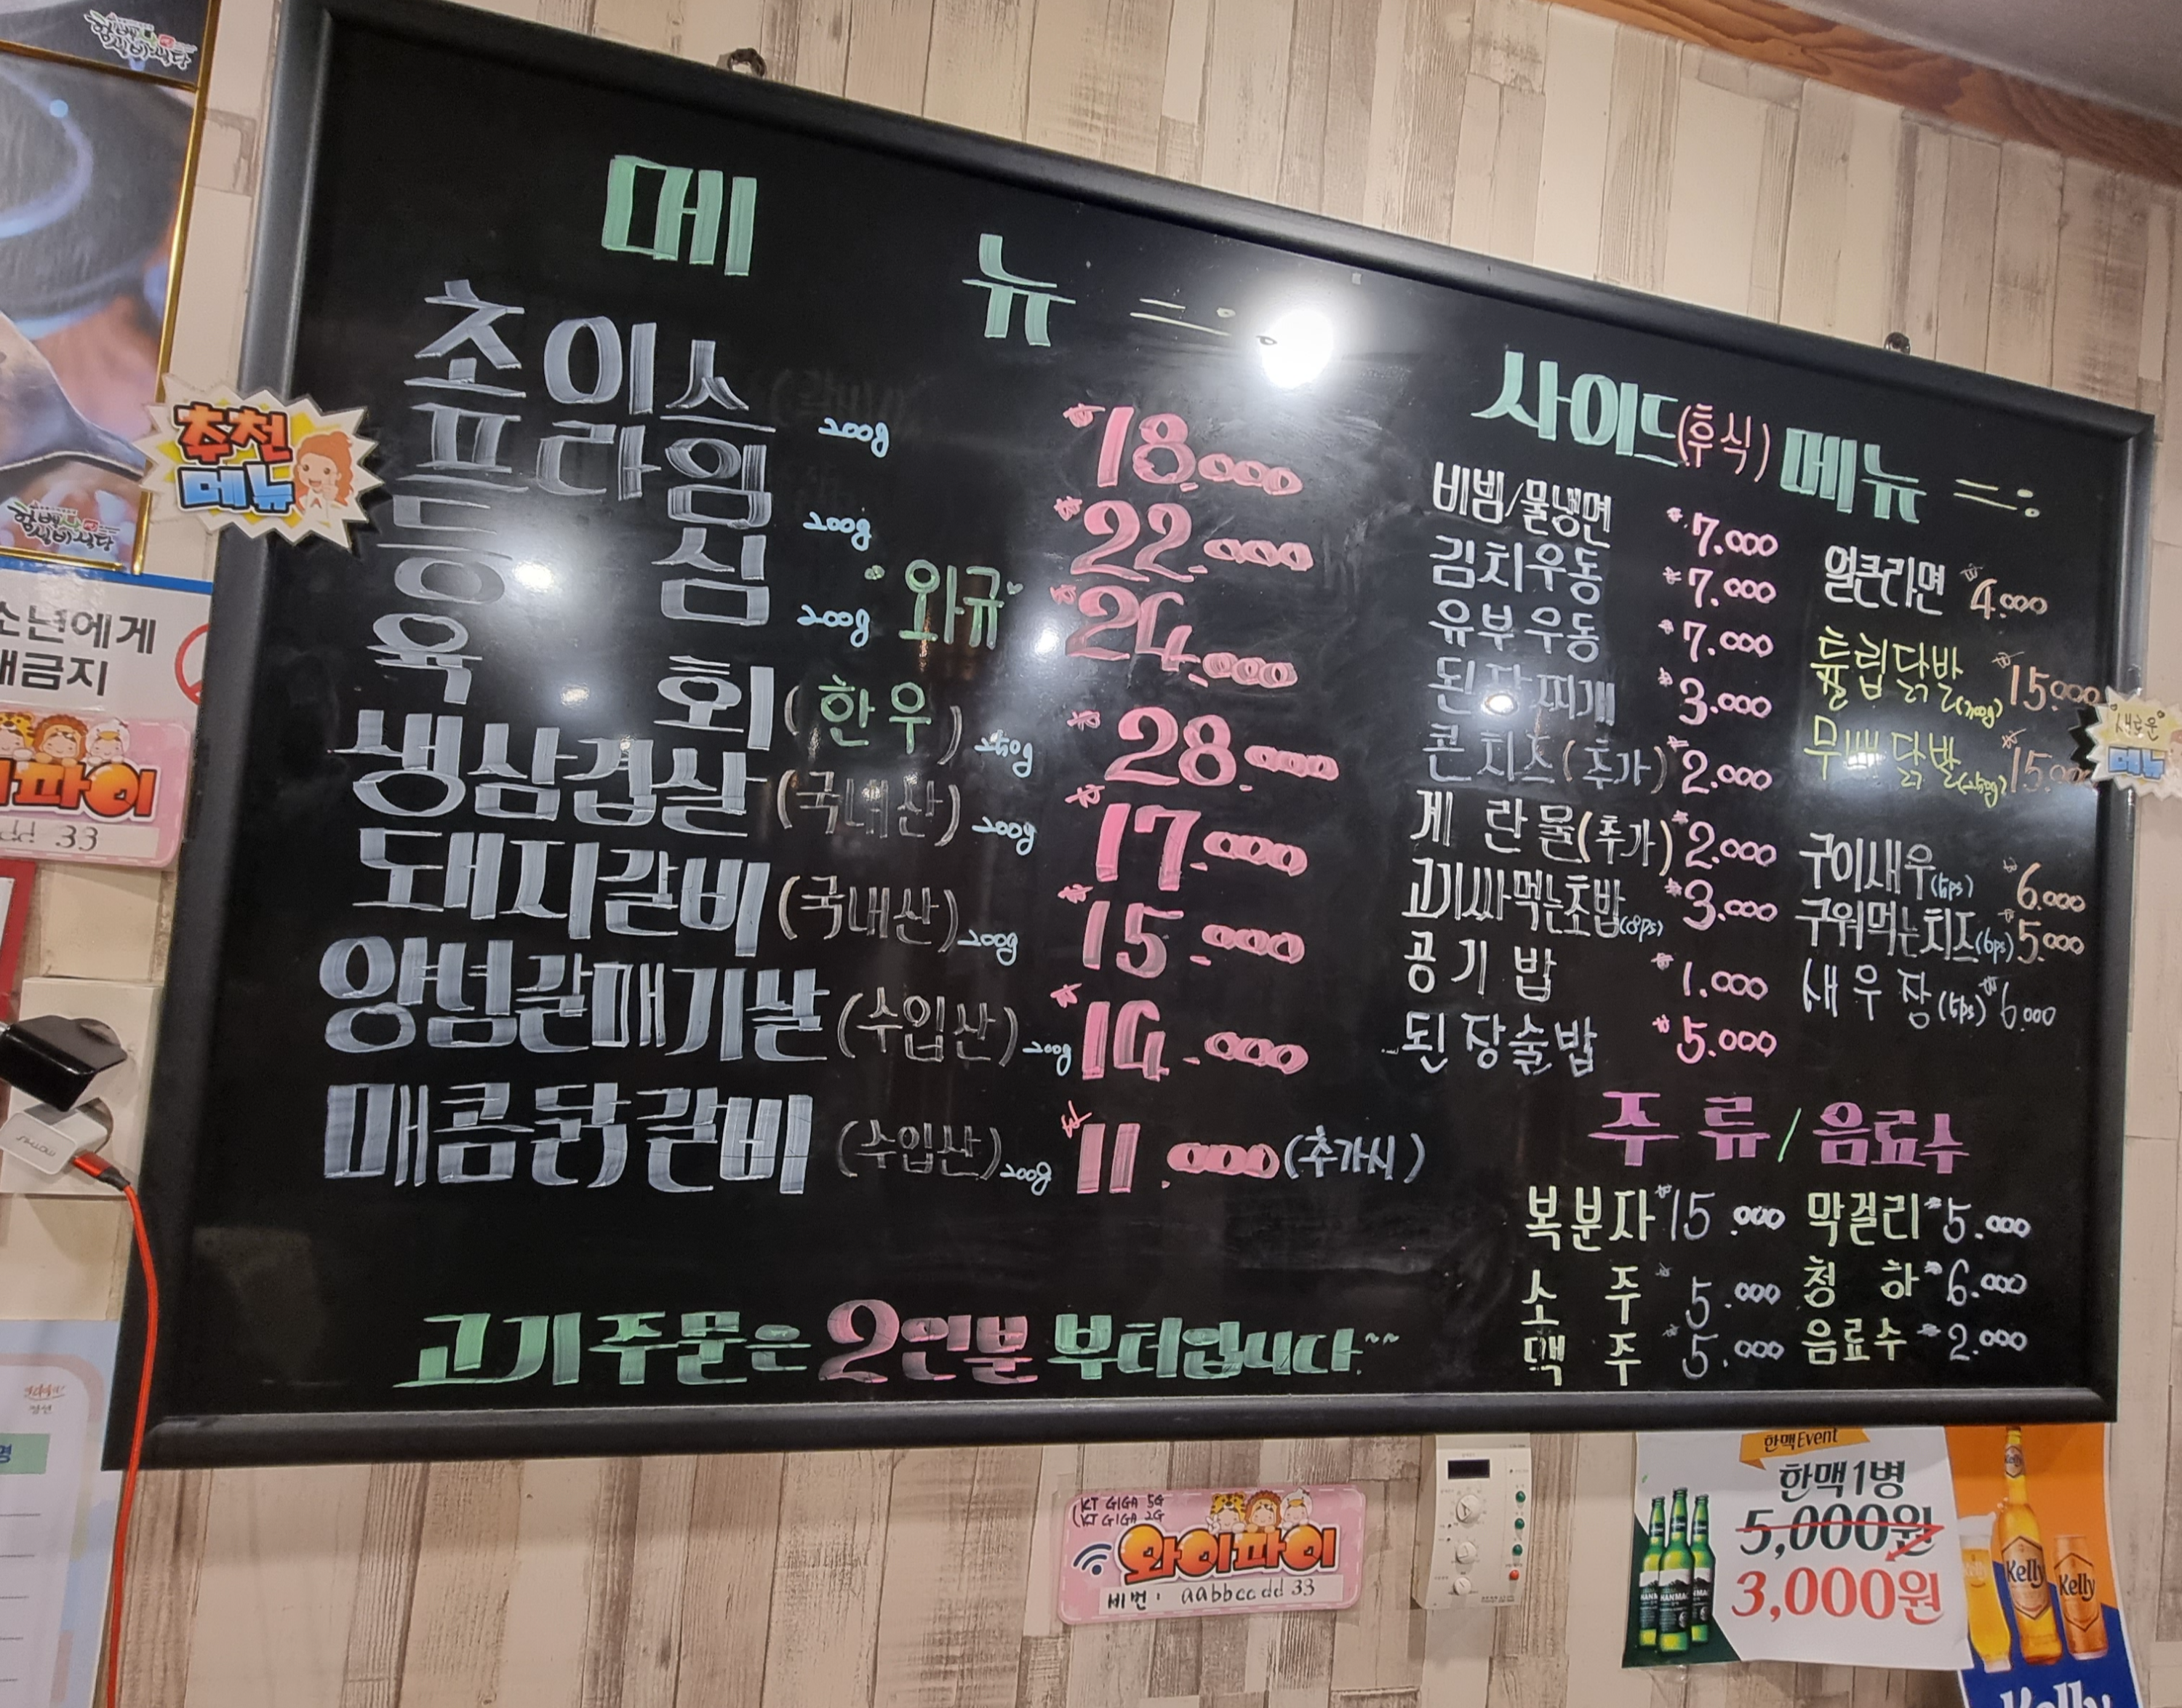 추천
메뉴
메 뉴
초이스 200g ₩18.000
프라임 200g ₩22.000
등 심 200g 와규 ₩24.000
육 회(한우) 250g ₩28.000
생삼겹살(국내산) 200g ₩17.000
돼지갈비(국내산) 200g ₩15.000
양념갈매기살(수입산) 200g ₩14.000
매콤닭갈비(수입산) 200g ₩11.000(추가시)
고기주문은 2인분 부터입니다~~
사이드(후식) 메뉴
비빔/물냉면 ₩7.000
김치우동 ₩7.000
유부우동 ₩7.000
된장찌개 ₩3.000
콘치즈(추가) ₩2.000
계란물(추가) ₩2.000
고기싸먹는초밥(8ps) ₩3.000
공기밥 ₩1.000
된장술밥 ₩5.000
얼큰라면 ₩4.000
튤립닭발(300g) ₩15.000
무뼈닭발(250g) ₩15.000
구이새우(5ps) ₩6.000
구워먹는치즈(6ps) ₩5.000
새우장(5ps) ₩6.000
새로운
메뉴
주류/음료수
복분자 ₩15.000 막걸리 ₩5.000
소 주 ₩5.000 청 하 ₩6.000
맥 주 ₩5.000 음료수 ₩2.000
소년에게
금지
파이
dd 33
KT GIGA 5G
KT GIGA 2G
와이파이
비번: aabbccdd 33
한맥Event
한맥1병
5,000원
3,000원
Kelly
Kelly
Kelly